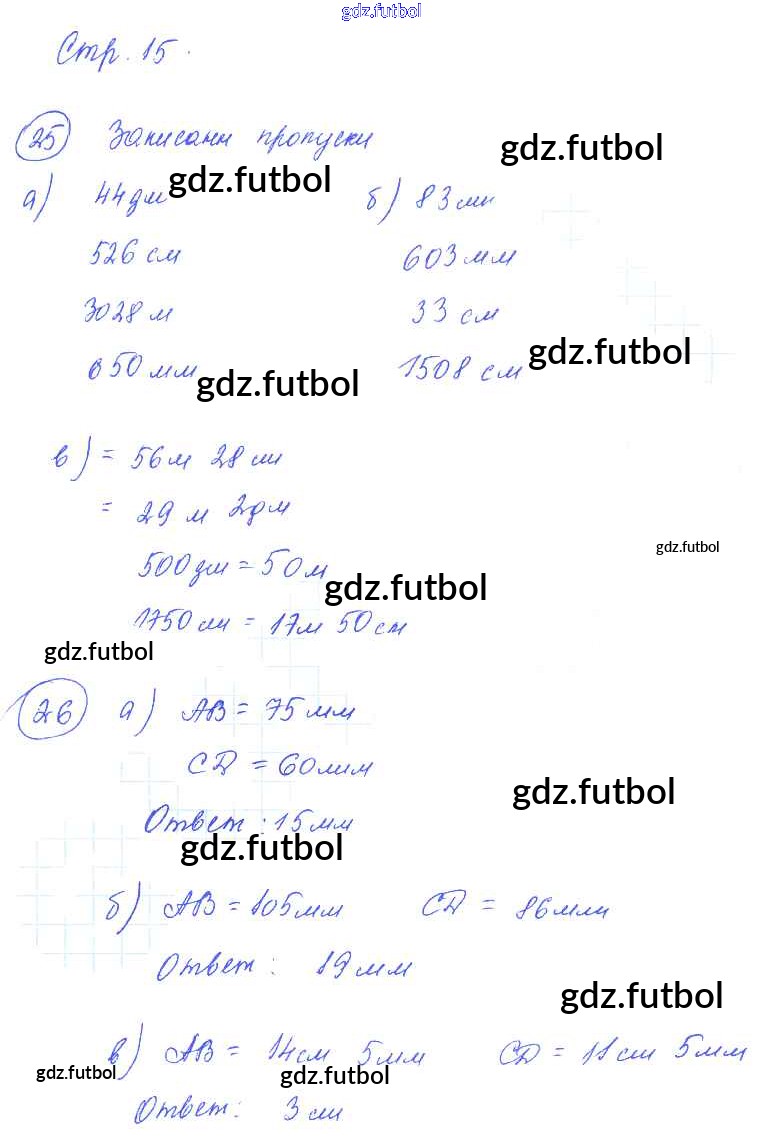 gdz.futbol
Стр. 15.
25 Записаны пропуски
gdz.futbol
а) 44 дм gdz.futbol б) 83 см
526 см 603 мм
3028 м 33 см
650 мм gdz.futbol 1508 см gdz.futbol
в) = 56 м 28 см
= 29 м 2 дм
gdz.futbol
500 дм = 50 м
gdz.futbol
1750 см = 17 м 50 см
gdz.futbol
26 а) AB = 75 мм
CD = 60 мм
gdz.futbol
Ответ: 15 мм
gdz.futbol
б) AB = 105 мм CD = 86 мм
Ответ: 19 мм
gdz.futbol
в) AB = 14 см 5 мм CD = 11 см 5 мм
gdz.futbol gdz.futbol
Ответ: 3 см